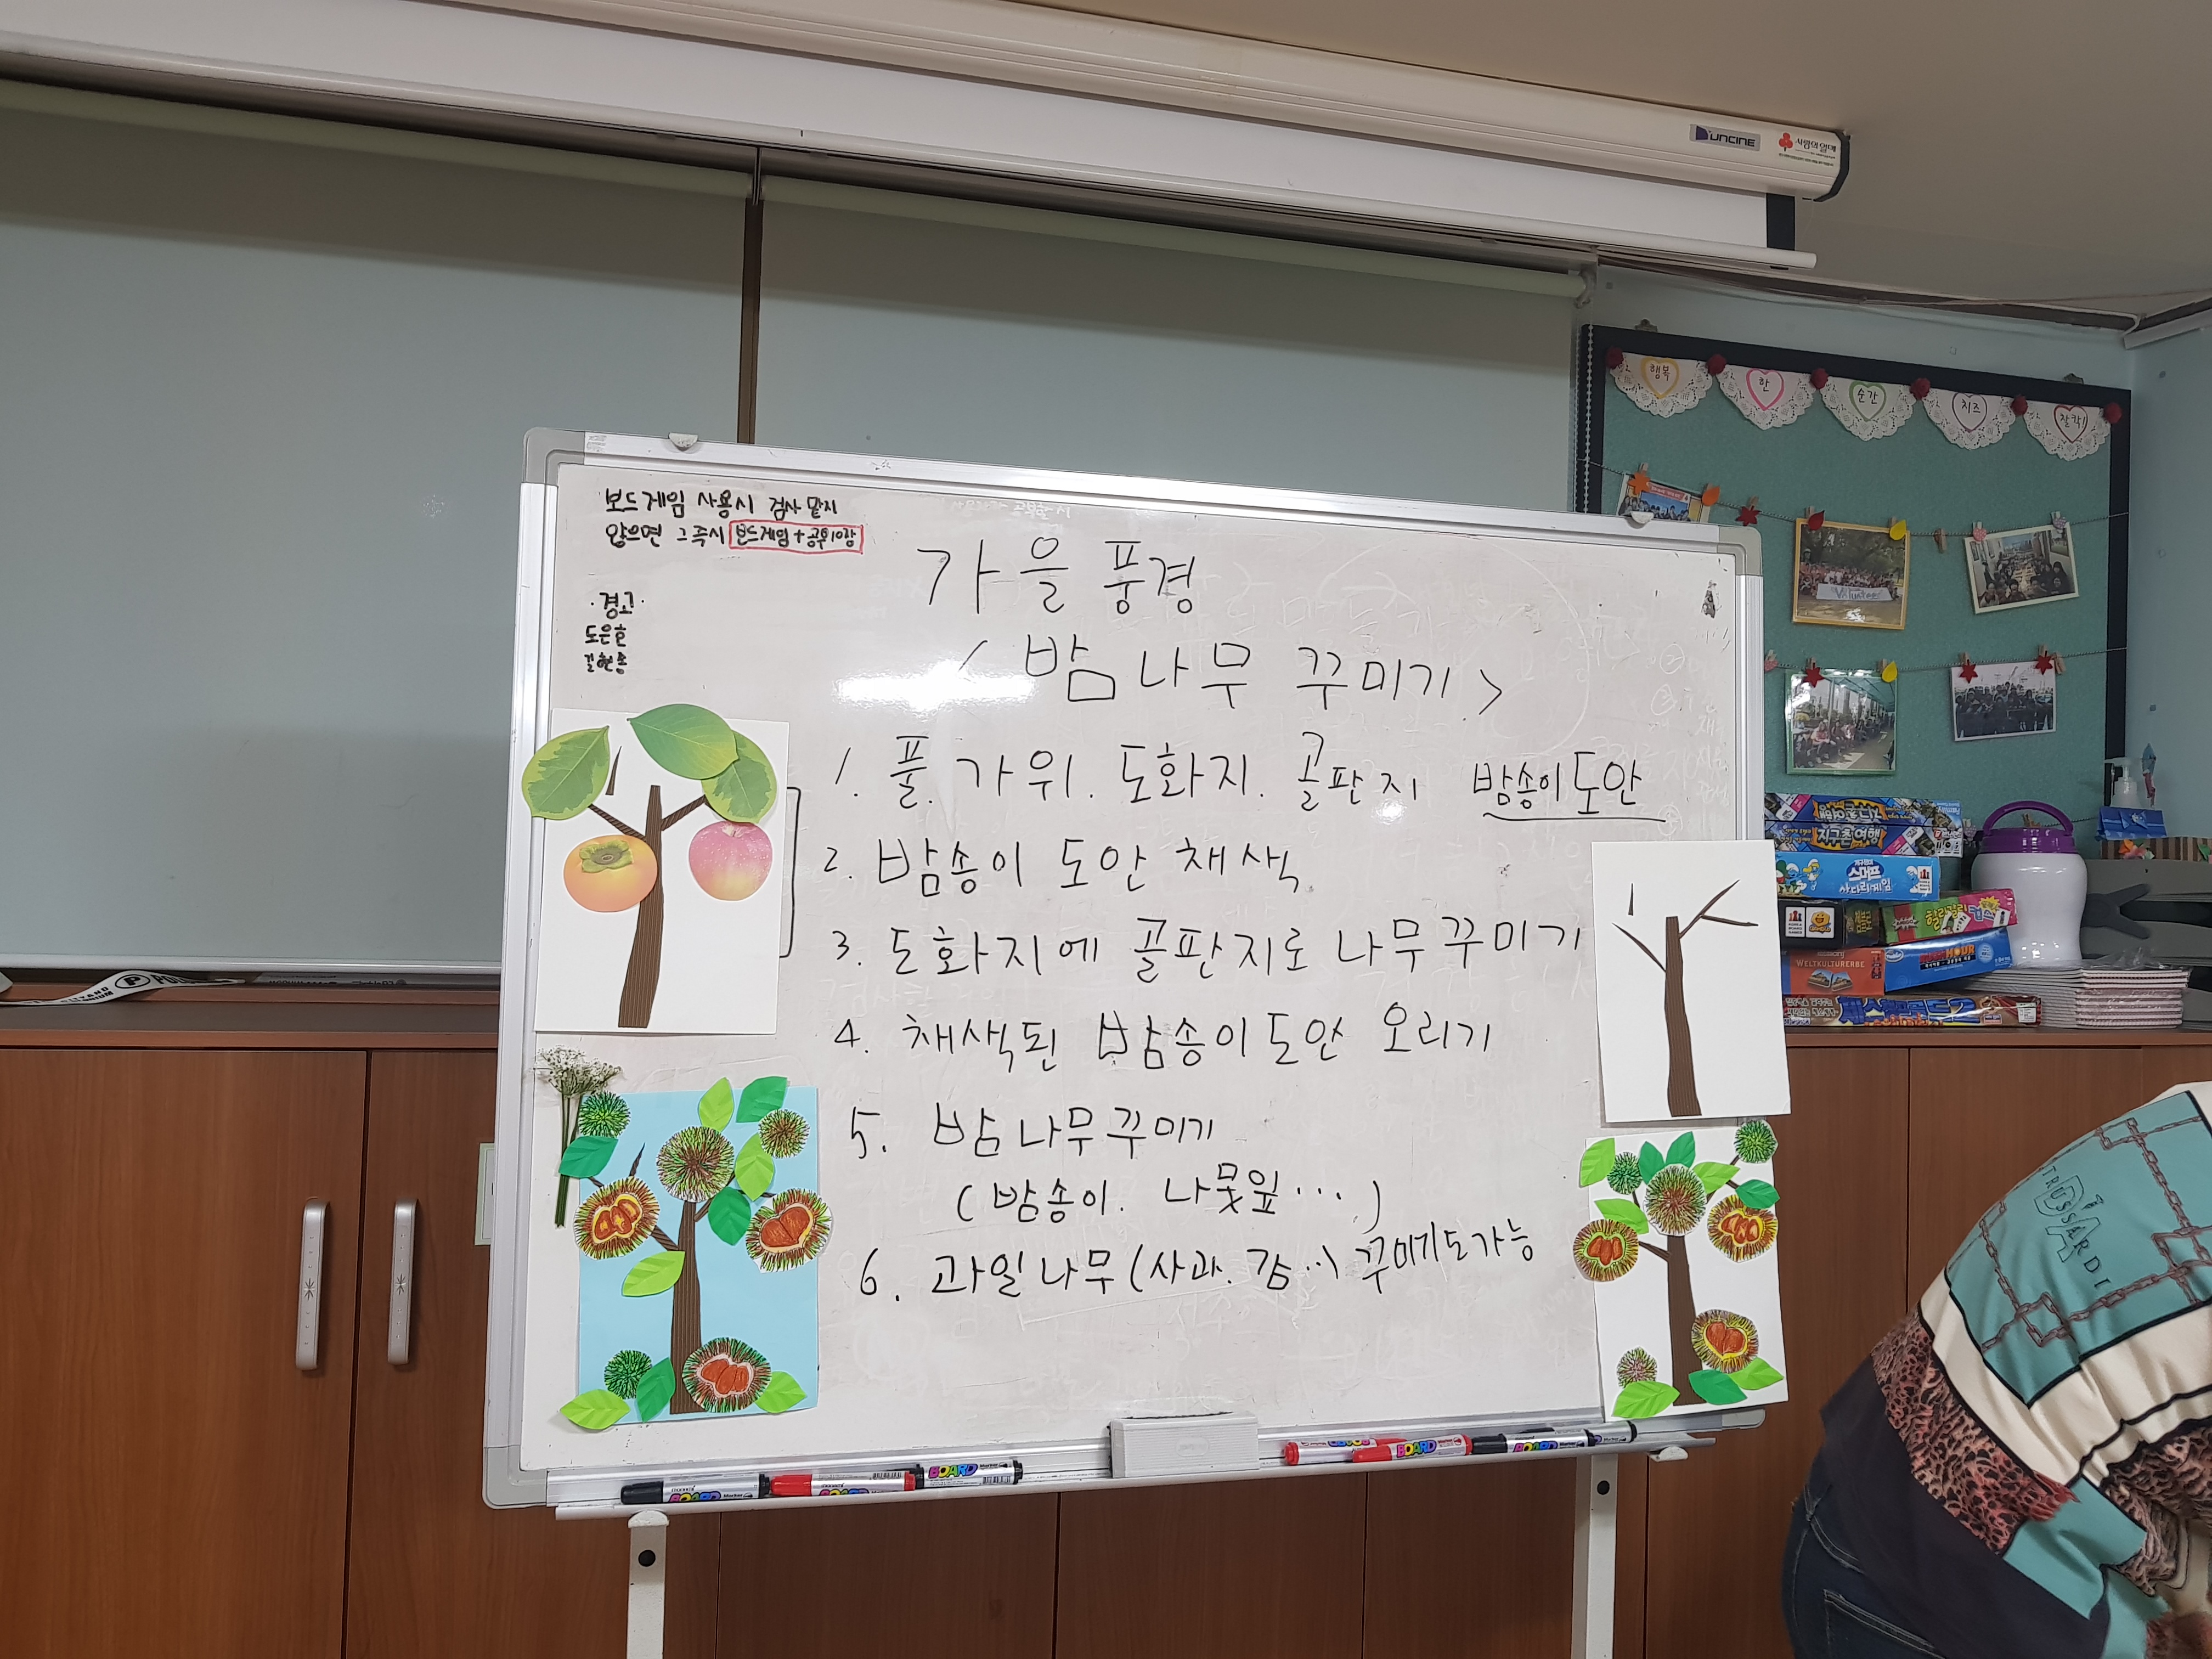 UNCINE
사랑의열매
행복
한
순간
치즈
찰칵!
보드게임 사용시 검사 맡지
않으면 그 즉시 보드게임 + 공부10장
·경고·
도은호
가을 풍경
< 밤나무 꾸미기 >
1. 풀. 가위. 도화지. 골판지 밤송이도안
2. 밤송이 도안 채색
3. 도화지에 골판지로 나무꾸미기
4. 채색된 밤송이도안 오리기
5. 밤나무꾸미기
(밤송이. 나뭇잎...)
6. 과일나무(사과. 감...) 꾸미기도가능
Volunteer
지구촌여행
스머프
사다리게임
할리갈리
HOUR
WELTKULTURERBE
TRUSSARDI
BOARD Marker
BOARD Marker
BOARD Marker
BOARD
BOARD